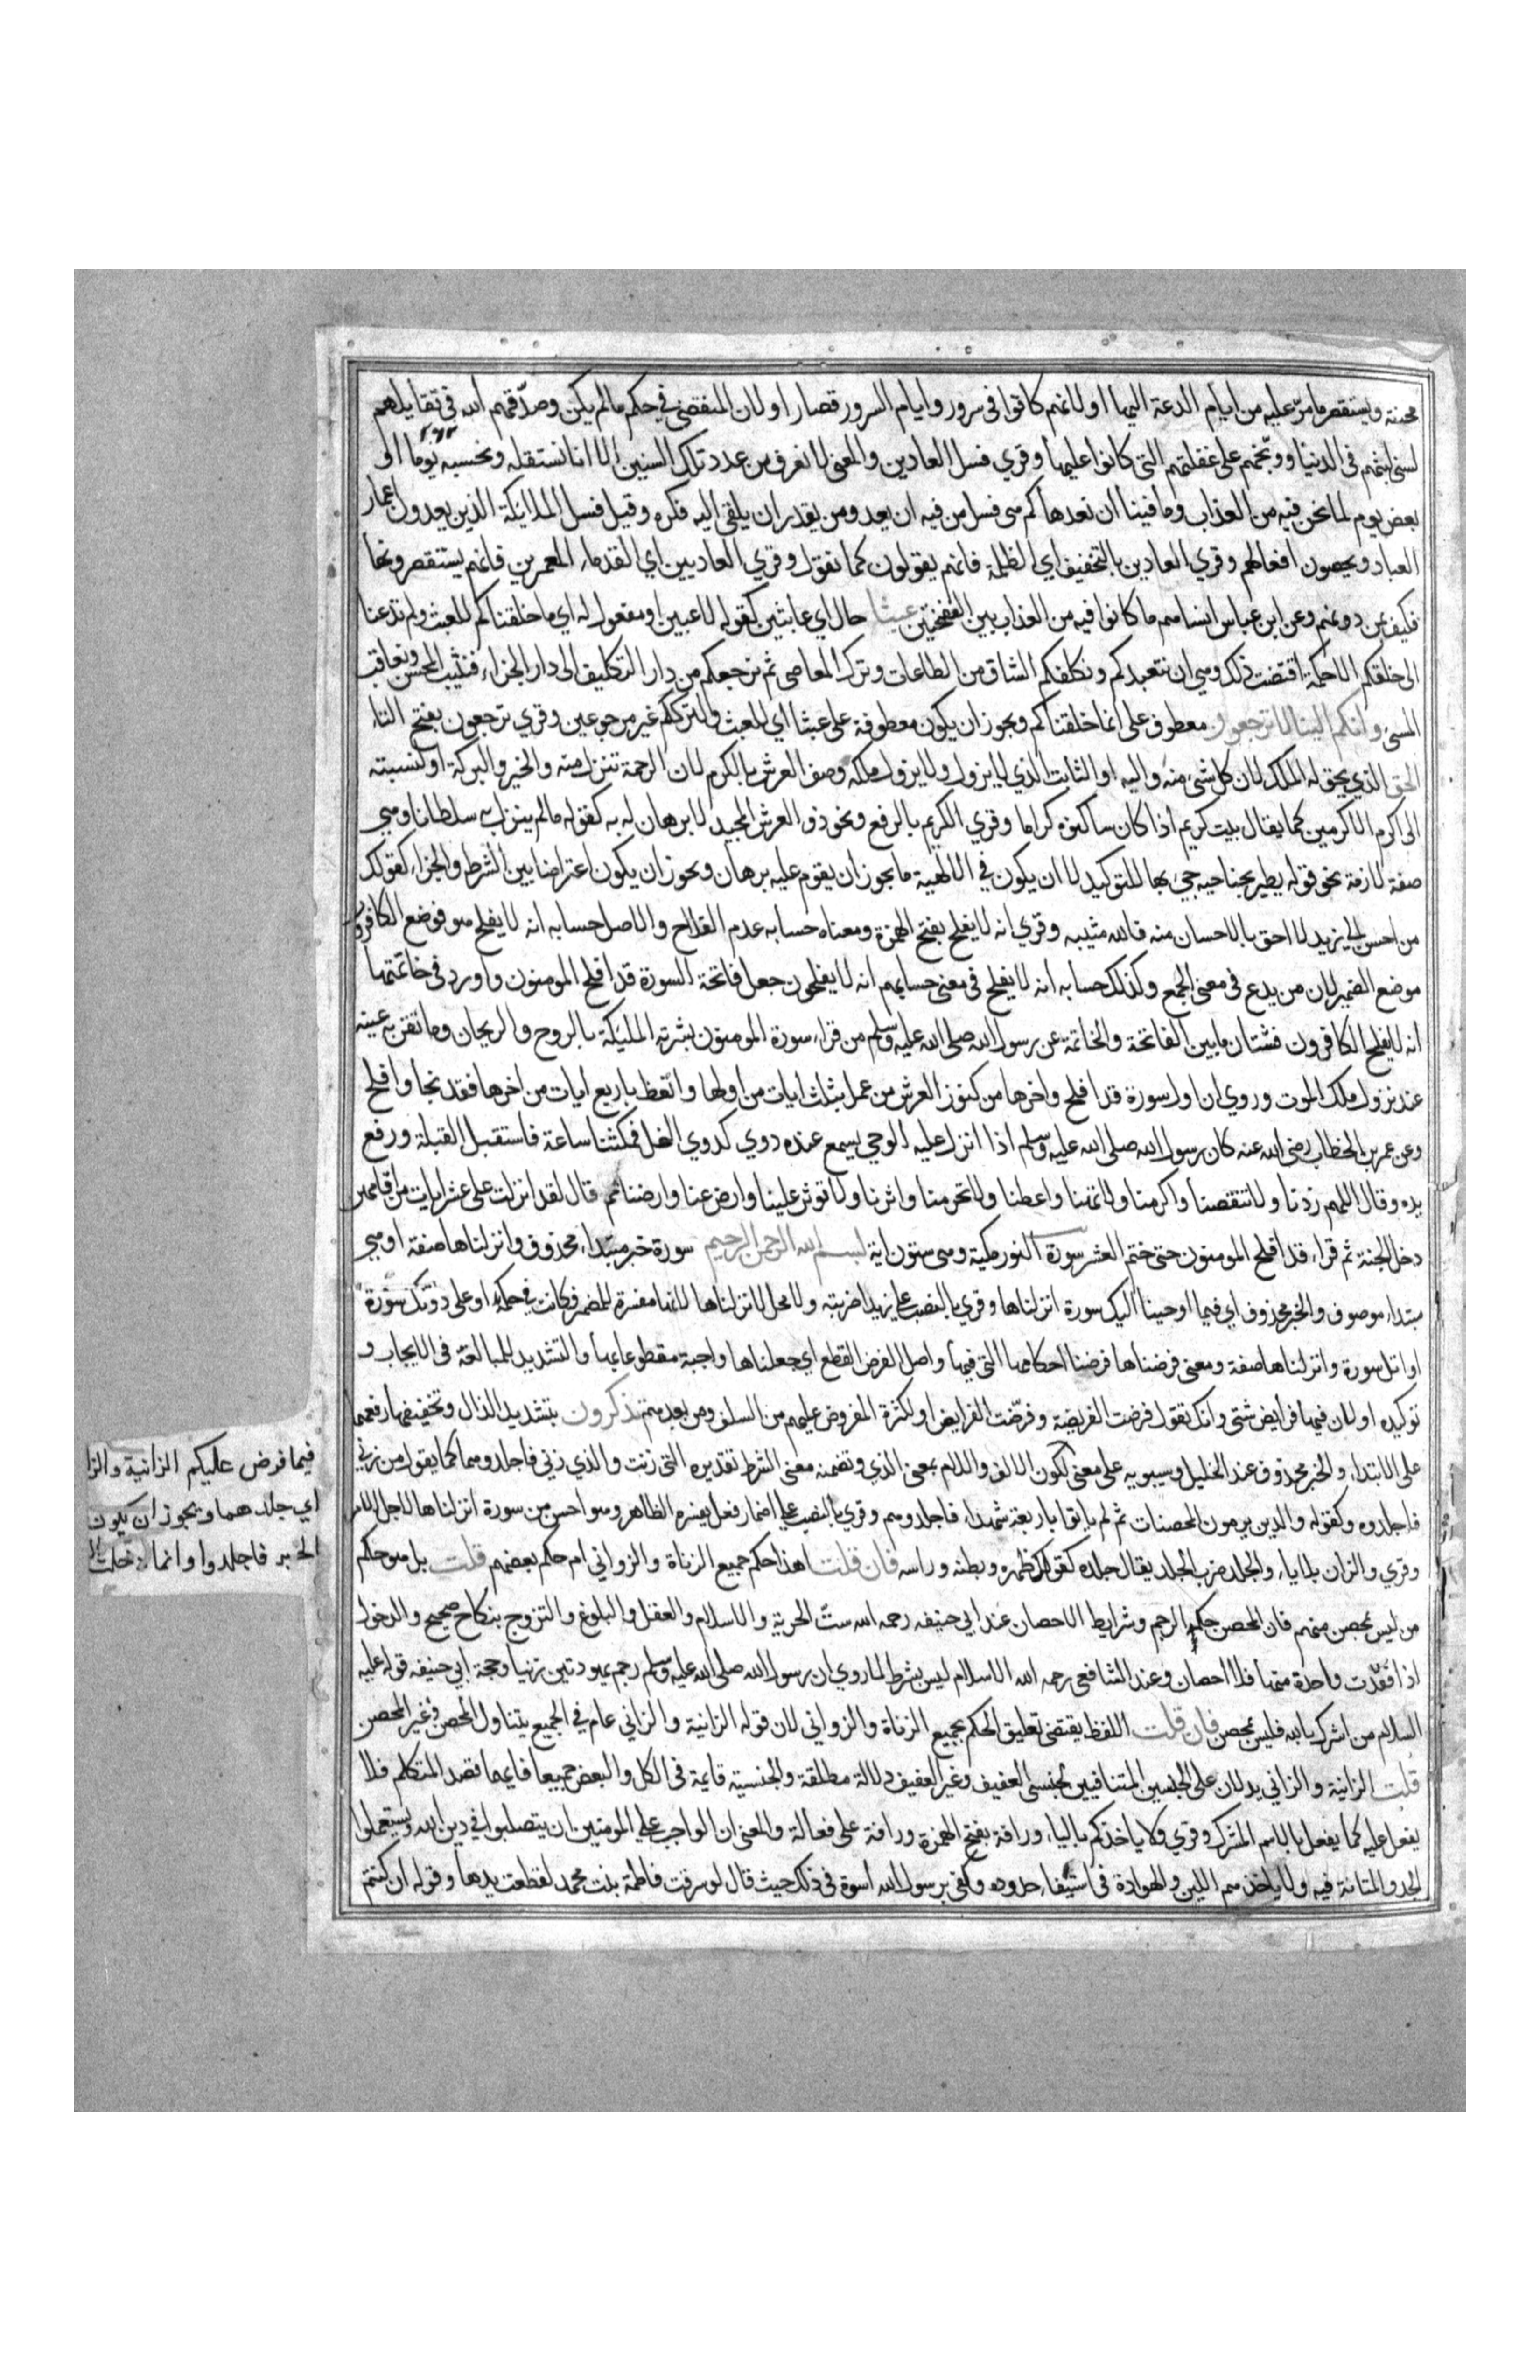 محنة ويستقصر ما مرّ عليه من ايام الدعة اليها او لانهم كانوا في سرور وايام السرور قصار او لان المنقضي في حكم ما لم يكن وصدّقهم الله في تقاليلهم
لسني لبثهم في الدنيا ووبّخهم على غفلتهم التي كانوا عليها وقري فسل العادين والمعنى لا نعرف من عدد تلك السنين الا انا نستقله ونحسبه يوما او
بعض يوم لما نحن فيه من العذاب وما فينا ان نعدها كم هي فسل من فيه ان يعد ومن يقدر ان يلقي اليه فكره وقيل فسل الملائكة الذين يعدون اعمار
العباد ويحصون افعالهم وقري العادين بالتخفيف اي الظلمة فانهم يقولون كما نقول وقري العاديين اي القدماء المعمرين فانهم يستقصرونها
فكيف بمن دونهم وعن ابن عباس انساهم ما كانوا فيه من العذاب بين النفختين عبثا حال اي عابثين كقوله لاعبين او مفعول له اي ما خلقناكم للعبث ولم تدعنا
الى خلقكم الا حكمة اقتضت ذلك وهي ان نتعبدكم ونكلفكم الشاق من الطاعات وترك المعاصي ثم نرجعكم من دار التكليف الى دار الجزاء فنثيب المحسن ونعاقب
المسيء وانكم الينا لا ترجعون معطوف على انما خلقناكم ويجوز ان يكون معطوفة على عبثا اي للعبث ولترككم غير مرجوعين وقري ترجعون بفتح التاء
الحق الذي يحق له الملك لان كل شيء منه واليه او الثابت الذي لا يزول ولا يزول ملكه وصف العرش بالكرم لان الرحمة تنزل منه والخير والبركة او لنسبته
الى اكرم الاكرمين كما يقال بيت كريم اذا كان ساكنوه كراما وقري الكريم بالرفع ونحو ذو العرش المجيد لا برهان له به كقوله ما لم ينزل به سلطانا وهي
صفة لازمة نحو قوله يطير بجناحيه جيء بها للتوكيد لا ان يكون في الالهية ما يجوز ان يقوم عليه برهان ويجوز ان يكون اعتراضا بين الشرط والجزاء كقولك
من احسن الى زيد لا احق بالاحسان منه فالله مثيبه وقري انه لا يفلح بفتح الهمزة ومعناه حسابه عدم الفلاح والاصل حسابه انه لا يفلح هو فوضع الكافرون
موضع الضمير لان من يدع في معنى الجمع وكذلك حسابه انه لا يفلح في معنى حسابهم انه لا يفلحون جعل فاتحة السورة قد افلح المومنون واورد في خاتمتها
انه لا يفلح الكافرون فشتان ما بين الفاتحة والخاتمة عن رسول الله صلى الله عليه وسلم من قراء سورة المومنون بشرته المليكة بالروح والريحان وما تقر به عينه
عند نزول ملك الموت وروي ان اول سورة قد افلح واخرها من كنوز العرش من عمل بثلث ايات من اولها واتعظ باربع ايات من اخرها فقد نجا وافلح
وعن عمر بن الخطاب رضي الله عنه كان رسول الله صلى الله عليه وسلم اذا انزل عليه الوحي يسمع عنده دوي كدوي النحل فمكثنا ساعة فاستقبل القبلة ورفع
يده وقال اللهم زدنا ولا تنقصنا واكرمنا ولا تهنا واعطنا ولا تحرمنا واثرنا ولا توثر علينا وارض عنا وارضنا ثم قال لقد انزلت علي عشر ايات من اقامهن
دخل الجنة ثم قراء قد افلح المومنون حتى ختم العشر سورة النور مكية وهي ستون اية بسم الله الرحمن الرحيم سورة خبر مبتداء محذوف وانزلناها صفة او هي
مبتداء موصوف والخبر محذوف اي فيما اوحينا اليك سورة انزلناها وقري بالنصب على زيدا ضربته ولا محل لانزلناها لانها مفسرة للمضمر فكانت في حكمه او على دونك سورة
او اتل سورة وانزلناها صفة ومعنى فرضناها فرضنا احكامها التي فيها واصل الفرض القطع اي جعلناها واجبة مقطوعا بها والتشديد للمبالغة في الايجاب و
توكيده او لان فيها فرايض شتى وانك تقول فرضت الفريضة وفرّضت الفرايض او لكثرة المفروض عليهم من السلف ومن بعدهم تذكرون بتشديد الذال وتخفيفها رفعهما
على الابتداء والخبر محذوف عند الخليل وسيبويه على معنى لكون الالف واللام بمعنى الذي وتضمنه معنى الشرط تقديره التي زنت والذي زنى فاجلدوهما كما يقول من زنى
فاجلدوه وكقوله والذين يرمون المحصنات ثم لم ياتوا باربعة شهداء فاجلدوهم وقري بالنصب على اضمار فعل يفسره الظاهر وهو احسن من سورة انزلناها لاجل الامر
وقري والزان بلا ياء والجلد ضرب الجلد يقال جلده كقولك ظهره وبطنه وراسه فان قلت اهذا حكم جميع الزناة والزواني ام حكم بعضهم قلت بل هو حكم
من ليس بمحصن منهم فان المحصن حكمه الرجم وشرايط الاحصان عند ابي حنيفه رحمه الله ستّ الحرية والاسلام والعقل والبلوغ والتزوج بنكاح صحيح والدخول
اذا فقدت واحدة منها فلا احصان وعند الشافعي رحمه الله الاسلام ليس بشرط لما روي ان رسول الله صلى الله عليه وسلم رجم يهوديين زنيا وحجة ابي حنيفه قوله عليه
السلام من اشرك بالله فليس بمحصن فان قلت اللفظ يقتضي تعليق الحكم بجميع الزناة والزواني لان قوله الزانية والزاني عام في الجميع يتناول المحصن وغير المحصن
قلت الزانية والزاني يدلان على الجنسين المتنافيين لجنسي العفيف وغير العفيف دلالة مطلقة والجنسية قايمة في الكل والبعض جميعا فايهما قصد المتكلم فلا
يفعل عليه كما يفعل بالاسم المشترك وقري ولا ياخذكم بالياء ورافة بفتح الهمزة ورافة على فعالة والمعنى ان الواجب على المومنين ان يتصلبوا في دين الله ويستعملوا
الجد والمتانة فيه ولا ياخذهم اللين والهوادة في استيفاء حدوده وكفى برسول الله اسوة في ذلك حيث قال لو سرقت فاطمة بنت محمد لقطعت يدها وقوله ان كنتم
فيما فرض عليكم الزانية والزا
اي جلدهما ويجوز ان يكون
الخبر فاجلدوا وانما دخلت الا